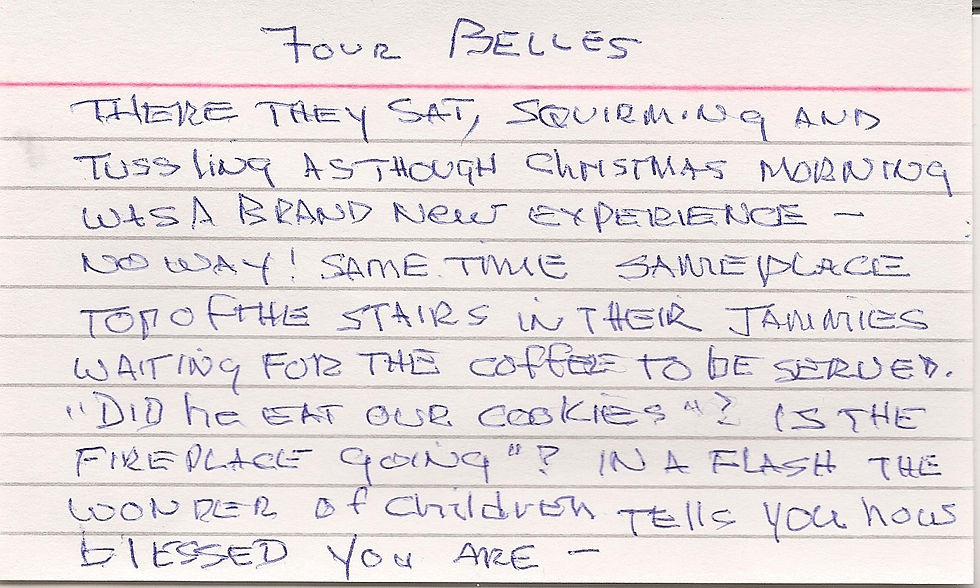 FOUR BELLES
THERE THEY SAT, SQUIRMING AND
TUSSLING AS THOUGH ChRISTMAS MORNING
WAS A BRAND New EXPERIENCE —
NO WAY! SAME TIME SAME PLACE
TOP OF THE STAIRS IN THEIR JAMMIES
WAITING FOR THE COFFEE TO bE SERVED.
"DID he EAT OUR COOKIES"? IS THE
FIREPLACE GOING"? IN A FLASH THE
WONDER of Children TElls you how
blESSED YOU ARE —